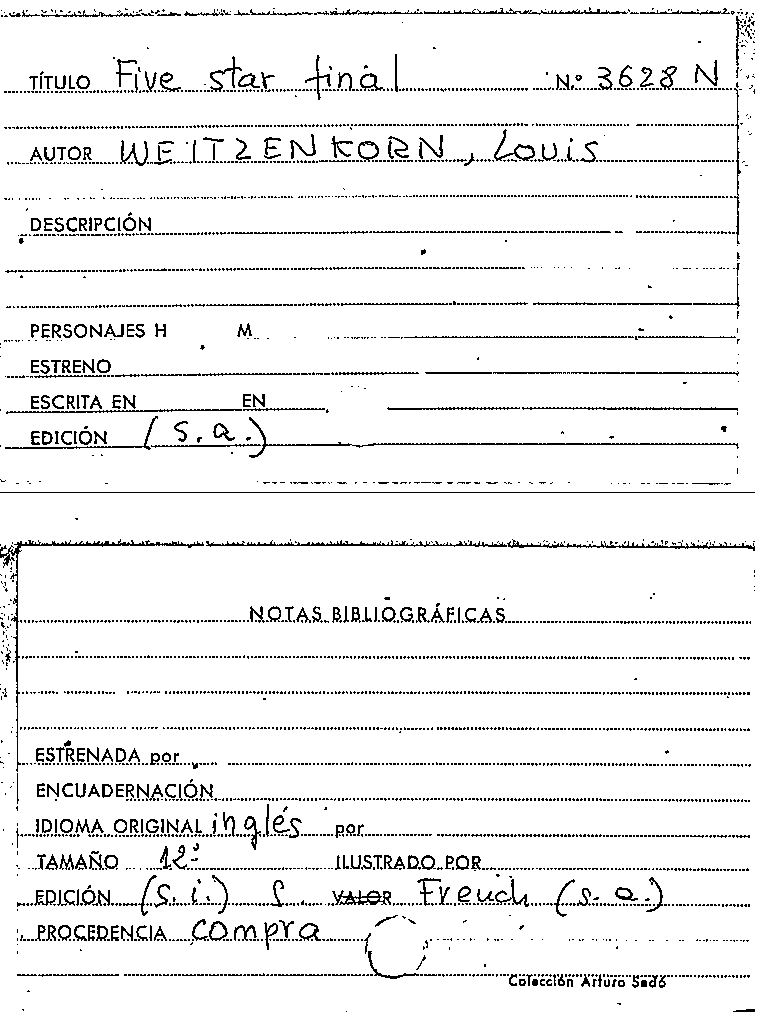 TÍTULO Five star final N.º 3628 N
AUTOR WEITZENKORN, Louis
DESCRIPCIÓN
PERSONAJES H M
ESTRENO
ESCRITA EN EN
EDICIÓN (s.a.)
NOTAS BIBLIOGRÁFICAS
ESTRENADA por
ENCUADERNACIÓN
IDIOMA ORIGINAL inglés por
TAMAÑO 12º ILUSTRADO POR
EDICIÓN (s.i.) S. VALOR French (s.a.)
PROCEDENCIA compra
Colección Arturo Sedó